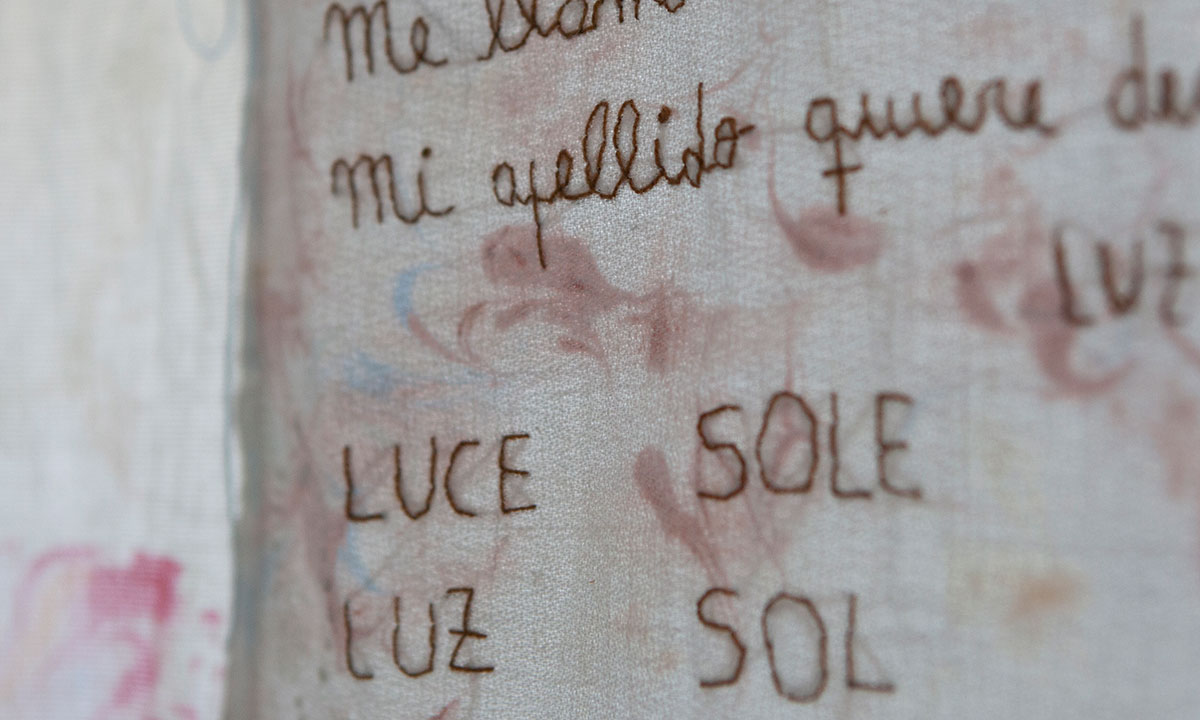 Me llamo
Mi apellido quiere de
LUZ
LUCE SOLE
LUZ SOL